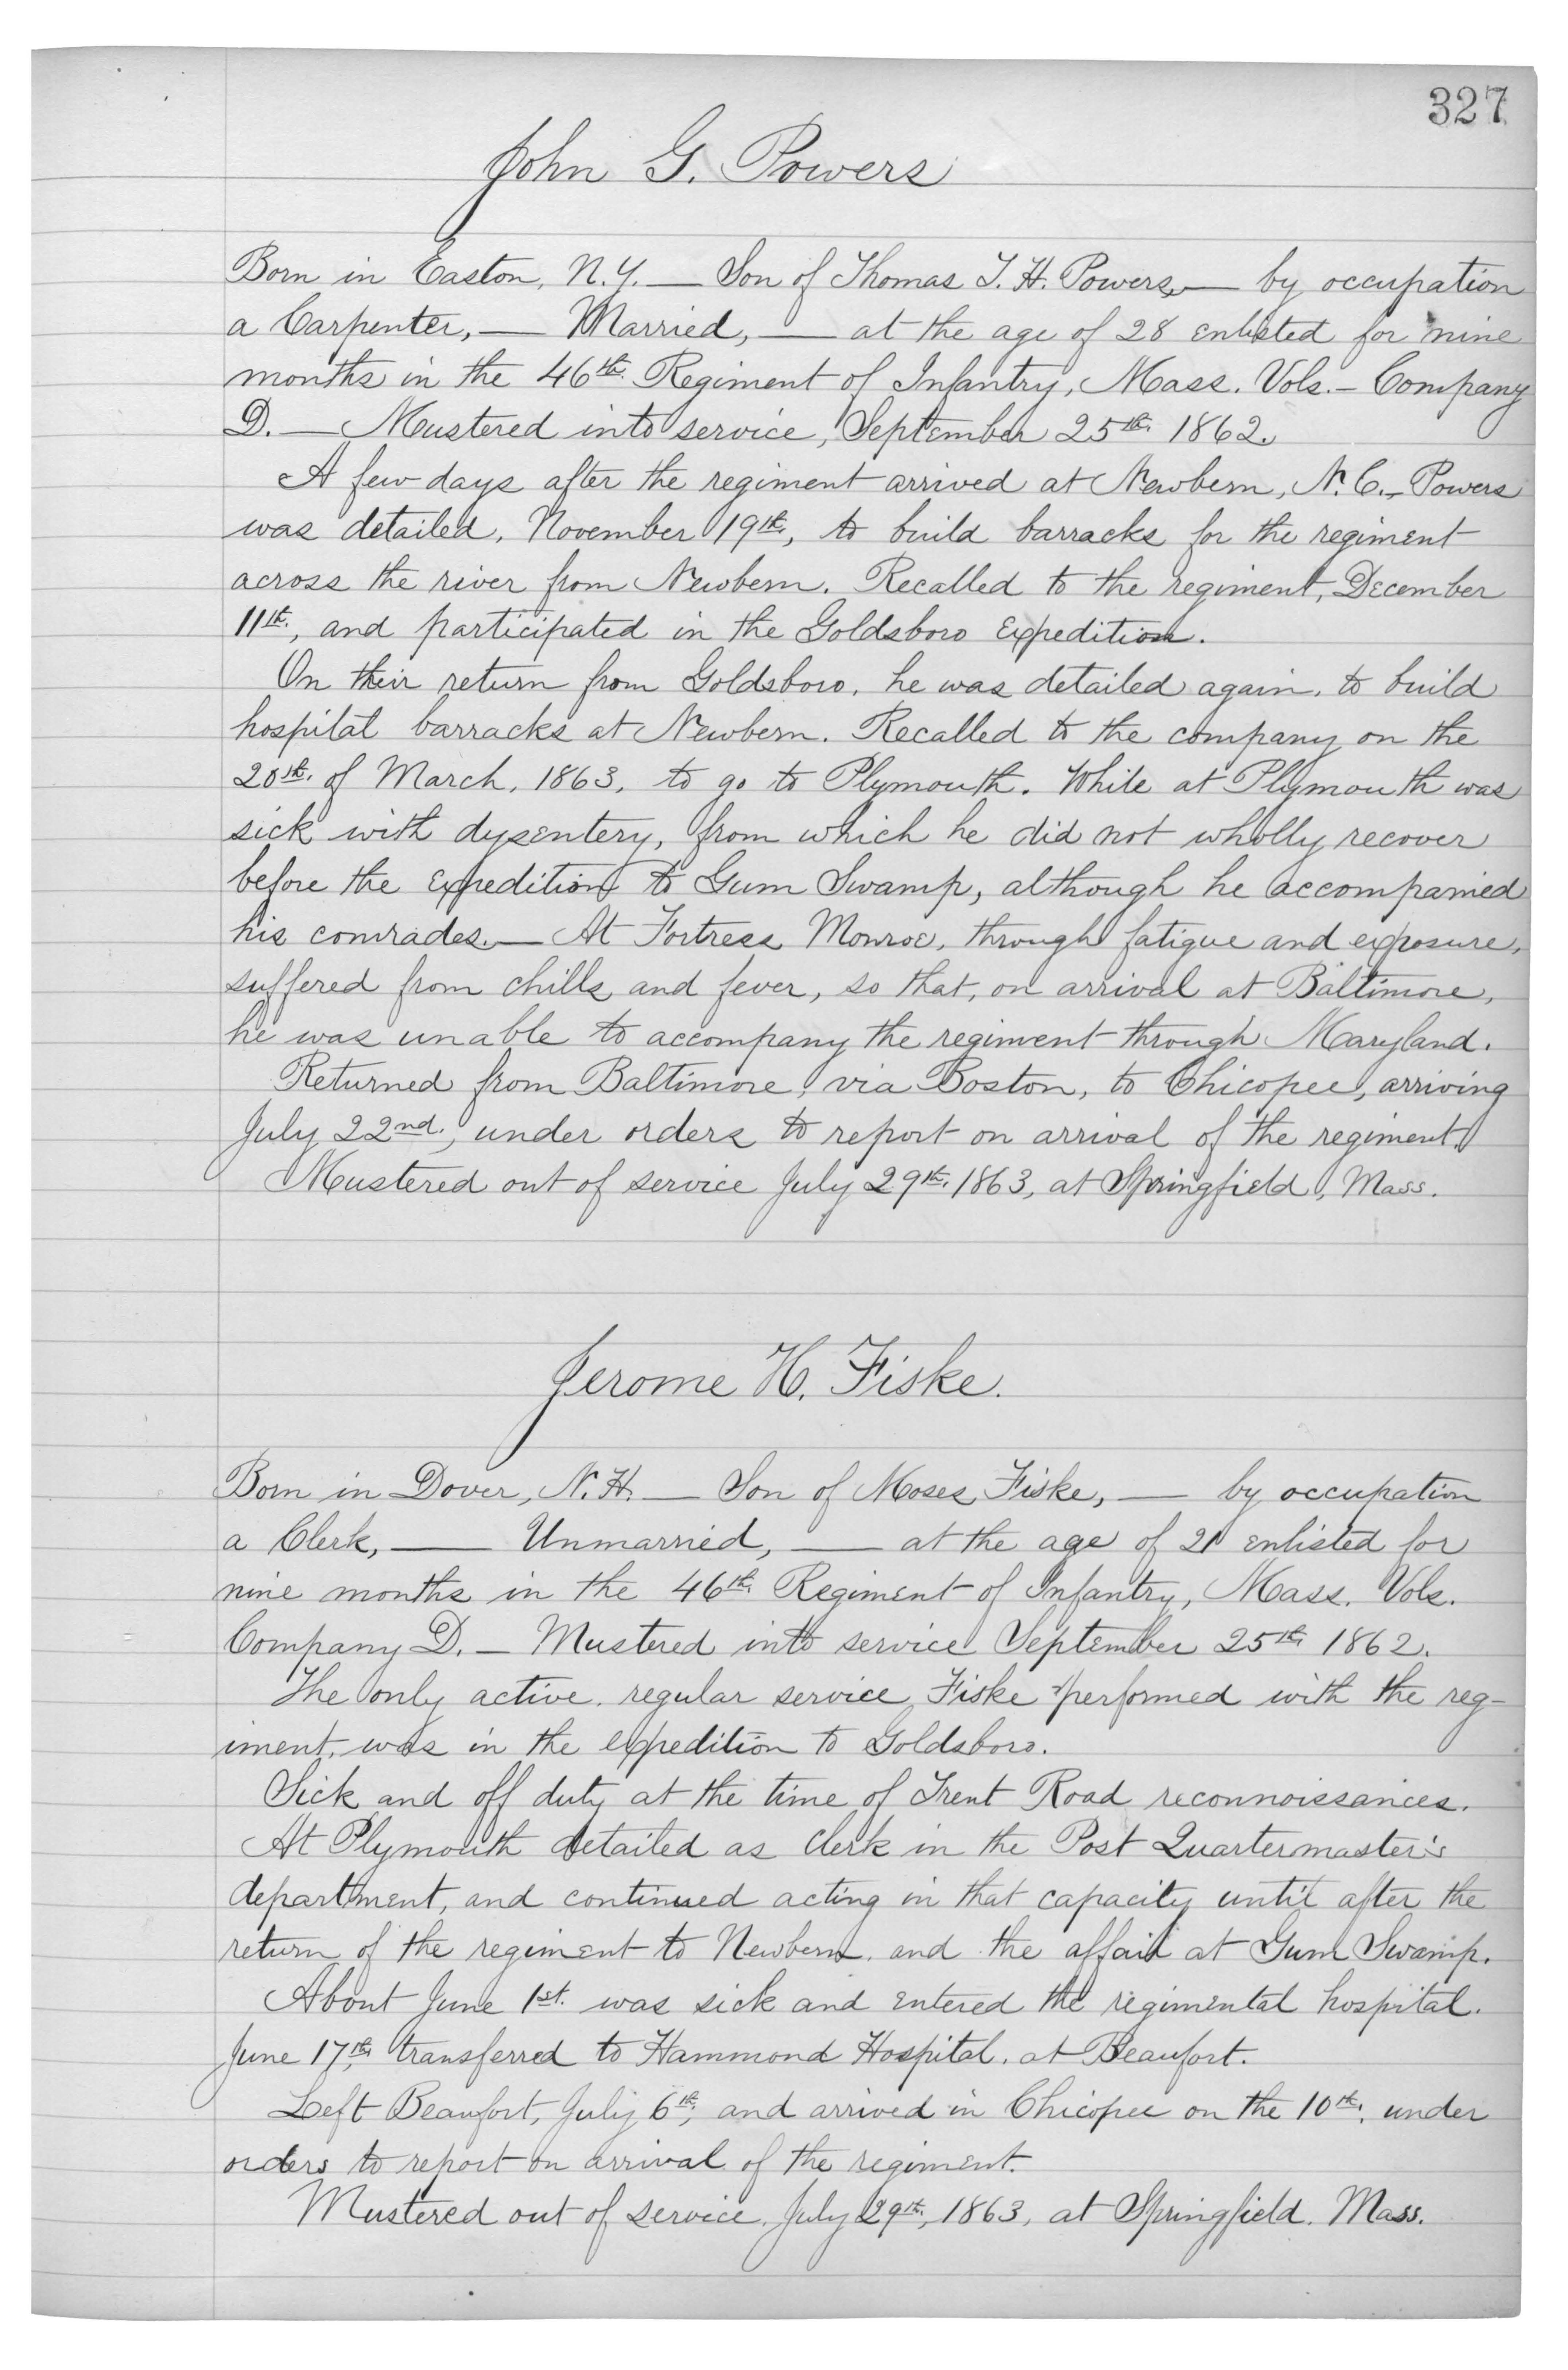 327
John G. Powers
Born in Easton, N.Y. — Son of Thomas T. H. Powers, — by occupation
a Carpenter, — Married, — at the age of 28 enlisted for nine
months in the 46th. Regiment of Infantry, Mass. Vols. – Company
D. — Mustered into service, September 25th. 1862.
A few days after the regiment arrived at Newbern, N.C. – Powers
was detailed, November 19th., to build barracks for the regiment
across the river from Newbern. Recalled to the regiment, December
11th., and participated in the Goldsboro Expedition.
On their return from Goldsboro, he was detailed again, to build
hospital barracks at Newbern. Recalled to the company on the
20th. of March, 1863, to go to Plymouth. While at Plymouth was
sick with dysentery, from which he did not wholly recover
before the Expedition to Gum Swamp, although he accompanied
his comrades. — At Fortress Monroe, through fatigue and exposure,
suffered from chills and fever, so that, on arrival at Baltimore,
he was unable to accompany the regiment through Maryland.
Returned from Baltimore, via Boston, to Chicopee, arriving
July 22nd., under orders to report on arrival of the regiment.
Mustered out of service July 29th. 1863, at Springfield, Mass.
Jerome H. Fiske.
Born in Dover, N.H. — Son of Moses Fiske, — by occupation
a Clerk, — Unmarried, — at the age of 21 enlisted for
nine months in the 46th. Regiment of Infantry, Mass. Vols.
Company D. – Mustered into service September 25th. 1862.
The only active, regular service, Fiske performed with the reg-
iment, was in the expedition to Goldsboro.
Sick and off duty at the time of Trent Road reconnoissances.
At Plymouth detailed as Clerk in the Post Quartermaster's
department, and continued acting in that capacity until after the
return of the regiment to Newbern, and the affair at Gum Swamp.
About June 1st. was sick and entered the regimental hospital.
June 17th., transferred to Hammond Hospital, at Beaufort.
Left Beaufort, July 6th., and arrived in Chicopee on the 10th., under
orders to report on arrival of the regiment.
Mustered out of service, July 29th., 1863, at Springfield, Mass.